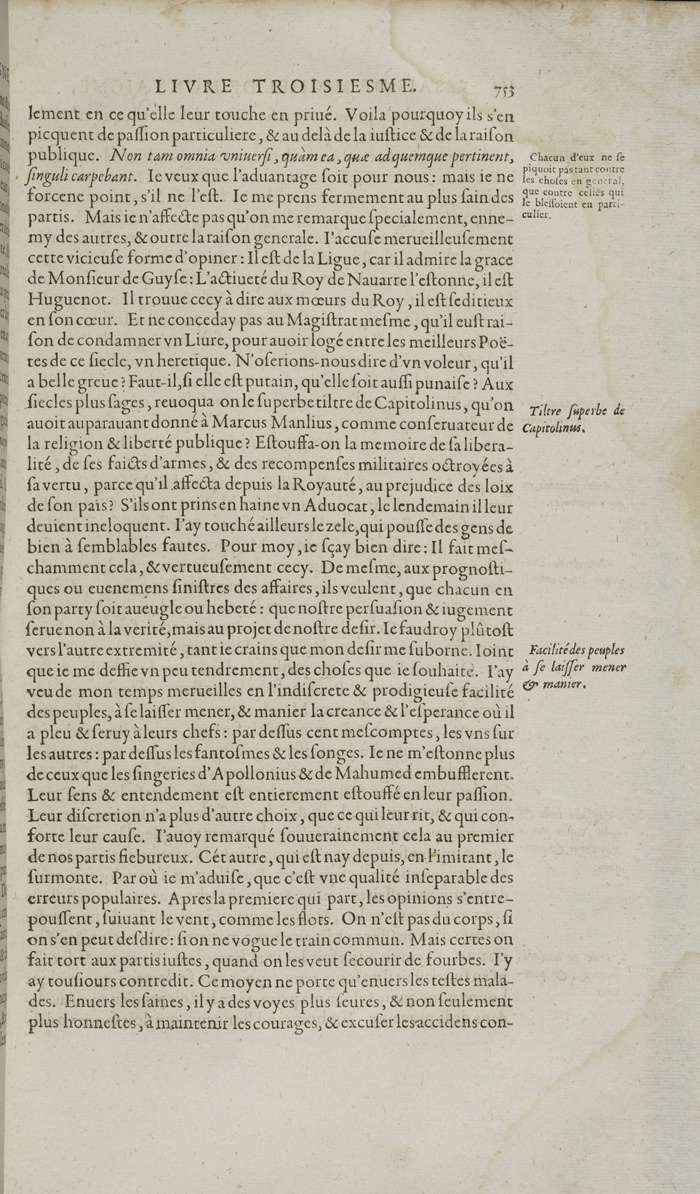 LIVRE TROISIESME. 753
lement en ce qu'elle leur touche en priué. Voila pourquoy ils s'en
picquent de paſſion particuliere, & au delà de la iuſtice & de la raiſon
publique. Non tam omnia vniuerſi, quàm ea, quæ ad quemque pertinent,
ſinguli carpebant. Ie veux que l'aduantage ſoit pour nous: mais ie ne
forcene point, s'il ne l'eſt. Ie me prens fermement au plus ſain des
partis. Mais ie n'affecte pas qu'on me remarque ſpecialement, enne-
my des autres, & outre la raiſon generale. I'accuſe merueilleuſement
cette vicieuſe forme d'opiner: Il eſt de la Ligue, car il admire la grace
de Monſieur de Guyſe: L'actiueté du Roy de Nauarre l'eſtonne, il eſt
Huguenot. Il trouue cecy à dire aux mœurs du Roy, il eſt ſeditieux
en ſon cœur. Et ne conceday pas au Magiſtrat meſme, qu'il euſt rai-
ſon de condamner vn Liure, pour auoir logé entre les meilleurs Poë-
tes de ce ſiecle, vn heretique. N'oſerions-nous dire d'vn voleur, qu'il
a belle greue? Faut-il, ſi elle eſt putain, qu'elle ſoit auſſi punaiſe? Aux
ſiecles plus ſages, reuoqua on le ſuperbe tiltre de Capitolinus, qu'on
auoit auparauant donné à Marcus Manlius, comme conſeruateur de
la religion & liberté publique? Eſtouffa-on la memoire de ſa libera-
lité, de ſes faicts d'armes, & des recompenſes militaires octroyées à
ſa vertu, parce qu'il affecta depuis la Royauté, au prejudice des loix
de ſon païs? S'ils ont prins en haine vn Aduocat, le lendemain il leur
deuient ineloquent. I'ay touché ailleurs le zele, qui pouſſe des gens de
bien à ſemblables fautes. Pour moy, ie ſçay bien dire: Il fait meſ-
chamment cela, & vertueuſement cecy. De meſme, aux prognoſti-
ques ou euenemens ſiniſtres des affaires, ils veulent, que chacun en
ſon party ſoit aueugle ou hebeté: que noſtre perſuaſion & iugement
ſerue non à la verité, mais au projet de noſtre deſir. Ie faudroy plûtoſt
vers l'autre extremité, tant ie crains que mon deſir me ſuborne. Ioint
que ie me deffie vn peu tendrement, des choſes que ie ſouhaite. I'ay
veu de mon temps merueilles en l'indiſcrete & prodigieuſe facilité
des peuples, à ſe laiſſer mener, & manier la creance & l'eſperance où il
a pleu & ſeruy à leurs chefs: par deſſus cent meſcomptes, les vns ſur
les autres: par deſſus les fantoſmes & les ſonges. Ie ne m'eſtonne plus
de ceux que les ſingeries d'Apollonius & de Mahumed embufflerent.
Leur ſens & entendement eſt entierement eſtouffé en leur paſſion.
Leur diſcretion n'a plus d'autre choix, que ce qui leur rit, & qui con-
forte leur cauſe. I'auoy remarqué ſouuerainement cela au premier
de nos partis fiebureux. Cét autre, qui eſt nay depuis, en l'imitant, le
ſurmonte. Par où ie m'aduiſe, que c'eſt vne qualité inſeparable des
erreurs populaires. Apres la premiere qui part, les opinions s'entre-
pouſſent, ſuiuant le vent, comme les flots. On n'eſt pas du corps, ſi
on s'en peut deſdire: ſi on ne vogue le train commun. Mais certes on
fait tort aux partis iuſtes, quand on les veut ſecourir de fourbes. I'y
ay touſiours contredit. Ce moyen ne porte qu'enuers les teſtes mala-
des. Enuers les ſaines, il y a des voyes plus ſeures, & non ſeulement
plus honneſtes, à maintenir les courages, & excuſer les accidens con-
Chacun d'eux ne ſe
piquoit pas tant contre
les choſes en general,
que contre celles qui
le bleſſoient en parti-
culier.
Tiltre ſuperbe de
Capitolinus.
Facilité des peuples
à ſe laiſſer mener
& manier.